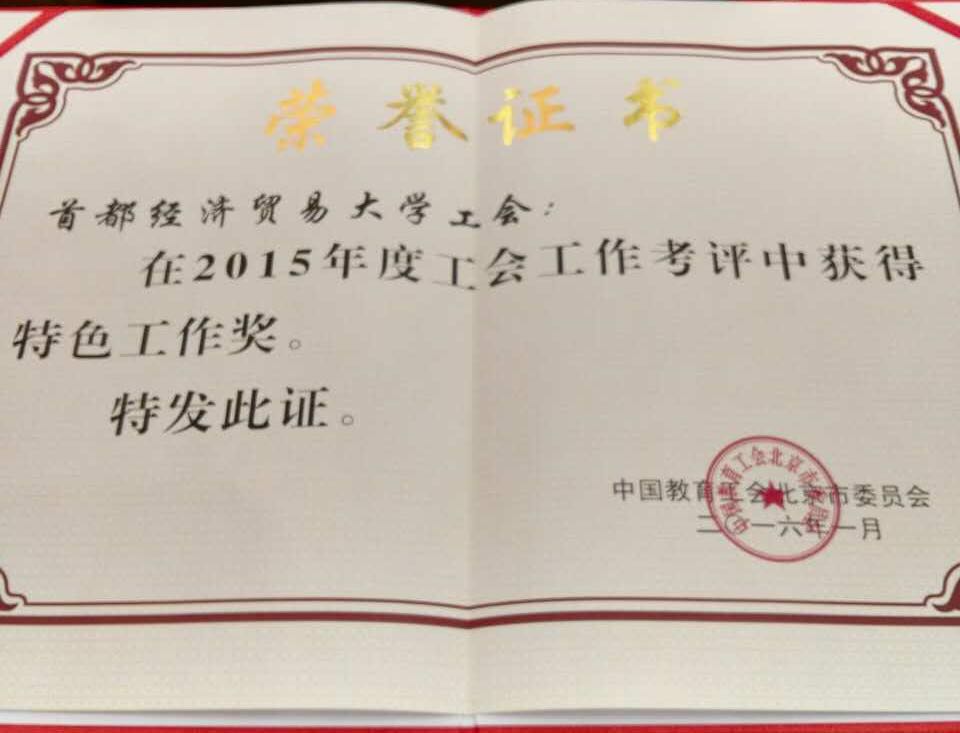 荣誉证书
首都经济贸易大学工会：
在2015年度工会工作考评中获得
特色工作奖。
特发此证。
中国教育工会北京市委员会
二〇一六年一月